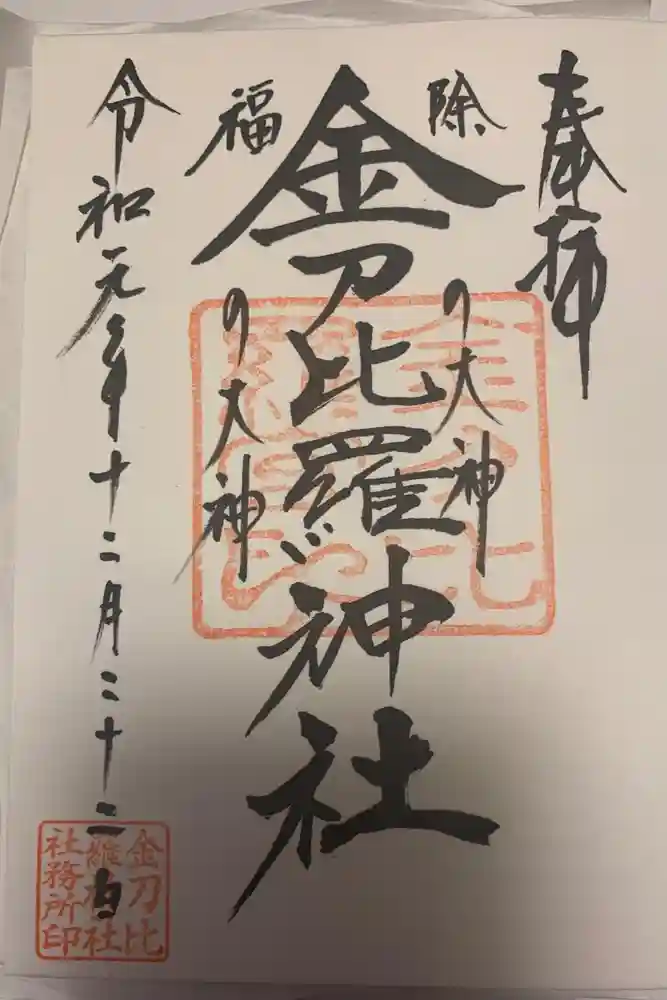 奉拝
除の大神
金刀比羅神社
福の大神
令和元年十二月二十二日
金刀比
羅神社
社務所印